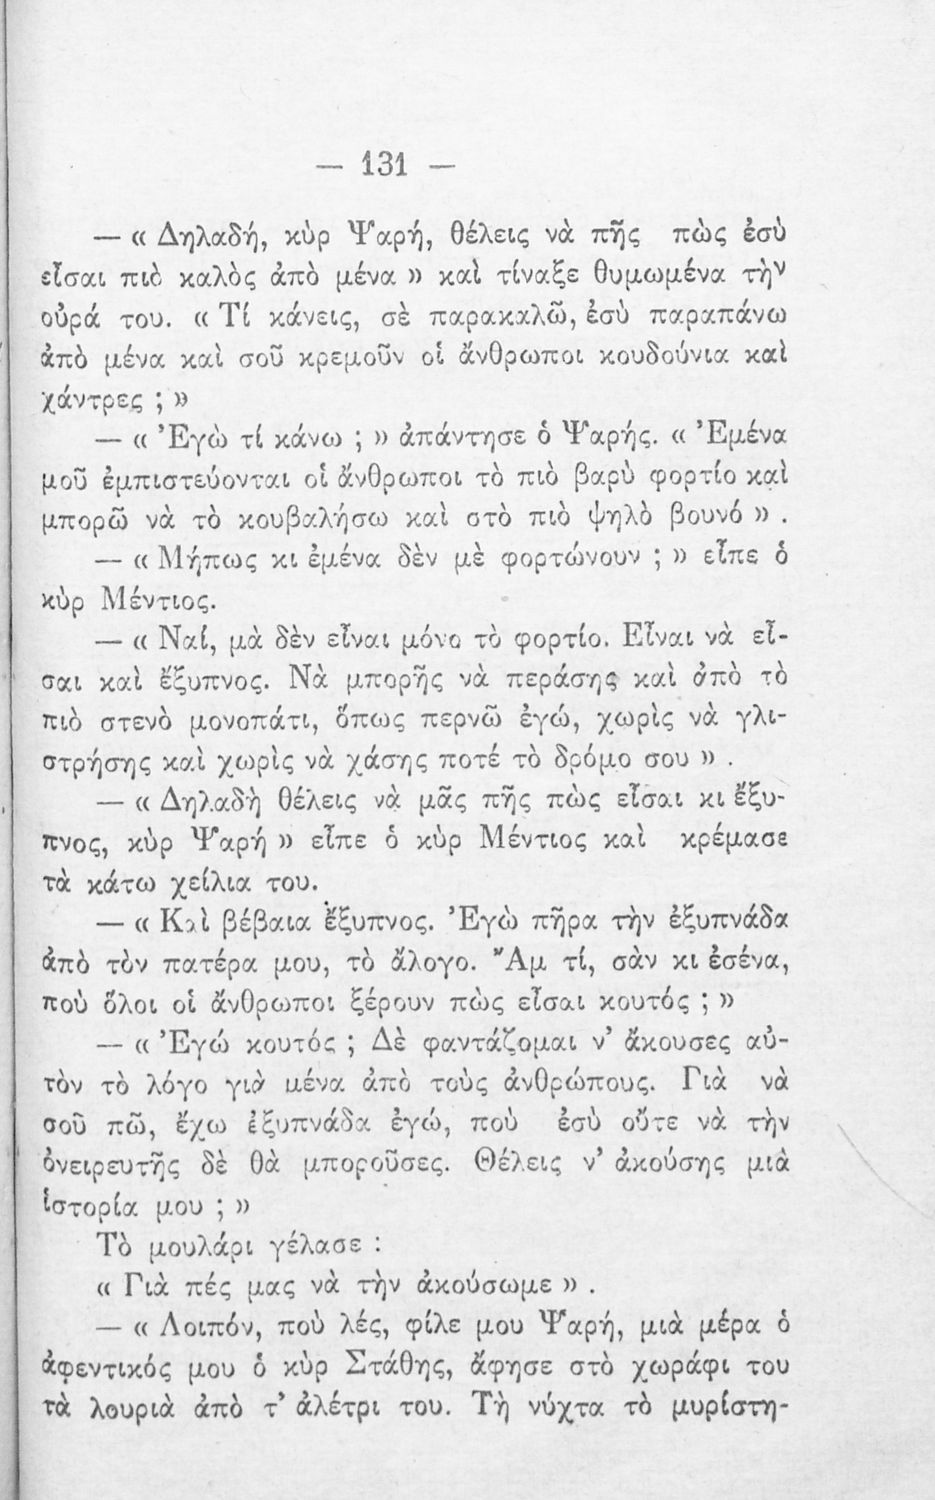 — 131 —
— « Δηλαδή, κὺρ Ψαρή, θέλεις νὰ πῆς πὼς ἐσὺ
εἶσαι πιὸ καλὸς ἀπὸ μένα » καὶ τίναξε θυμωμένα τὴν
οὐρά του. « Τί κάνεις, σὲ παρακαλῶ, ἐσὺ παραπάνω
ἀπὸ μένα καὶ σοῦ κρεμοῦν οἱ ἄνθρωποι κουδούνια καὶ
χάντρες ; »
— « Ἐγὼ τί κάνω ; » ἀπάντησε ὁ Ψαρής. « Ἐμένα
μοῦ ἐμπιστεύονται οἱ ἄνθρωποι τὸ πιὸ βαρὺ φορτίο καὶ
μπορῶ νὰ τὸ κουβαλήσω καὶ στὸ πιὸ ψηλὸ βουνό » .
— « Μήπως κι ἐμένα δὲν μὲ φορτώνουν ; » εἶπε ὁ
κὺρ Μέντιος.
— « Ναί, μὰ δὲν εἶναι μόνο τὸ φορτίο. Εἶναι νὰ εἶ-
σαι καὶ ἔξυπνος. Νὰ μπορῆς νὰ περάσης καὶ ἀπὸ τὸ
πιὸ στενὸ μονοπάτι, ὅπως περνῶ ἐγώ, χωρὶς νὰ γλι-
στρήσης καὶ χωρὶς νὰ χάσης ποτέ τὸ δρόμο σου » .
— « Δηλαδὴ θέλεις νὰ μᾶς πῆς πὼς εἶσαι κι ἔξυ-
πνος, κὺρ Ψαρή » εἶπε ὁ κὺρ Μέντιος καὶ κρέμασε
τὰ κάτω χείλια του.
— « Καὶ βέβαια ἔξυπνος. Ἐγὼ πῆρα τὴν ἐξυπνάδα
ἀπὸ τὸν πατέρα μου, τὸ ἄλογο. Ἂμ τί, σὰν κι ἐσένα,
ποὺ ὅλοι οἱ ἄνθρωποι ξέρουν πὼς εἶσαι κουτός ; »
— « Ἐγώ κουτός ; Δὲ φαντάζομαι ν’ ἄκουσες αὐ-
τὸν τὸ λόγο γιὰ μένα ἀπὸ τοὺς ἀνθρώπους. Γιὰ νὰ
σοῦ πῶ, ἔχω ἐξυπνάδα ἐγώ, ποὺ ἐσὺ οὔτε νὰ τὴν
ὀνειρευτῆς δὲ θὰ μποροῦσες. Θέλεις ν’ ἀκούσης μιὰ
ἱστορία μου ; »
Τὸ μουλάρι γέλασε :
« Γιὰ πές μας νὰ τὴν ἀκούσωμε » .
— « Λοιπόν, ποὺ λές, φίλε μου Ψαρή, μιὰ μέρα ὁ
ἀφεντικός μου ὁ κὺρ Στάθης, ἄφησε στὸ χωράφι του
τὰ λουριὰ ἀπὸ τ’ ἀλέτρι του. Τὴ νύχτα τὸ μυρίστη-